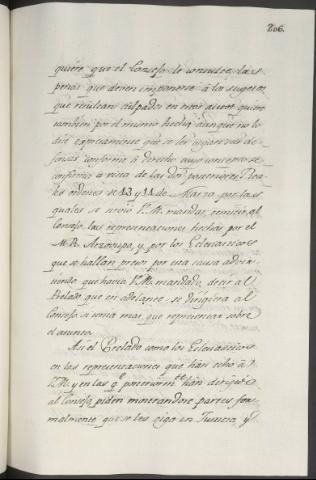 206.
quiere que el Consejo le consulte las
penas que deven imponerse à los sugetos
que resultan culpados en estos autos, quiere
tambien por el mismo hecho aunque no lo
dice expresamente que se les oigan sus de-
fensas conforme à derecho, cuyo concepto se
confirma à vista de las dos posteriores Rea-
les ordenes de 13 y 14 de Marzo por las
quales se sirvió V.M. mandar remitir al
Consejo las representaciones hechas por el
M.R. Arzobispo, y por los Eclesiasticos
que se hallan presos por esta causa advir-
tiendo que havia V.M. mandado, decir al
Prelado que en adelante se dirigiera al
Consejo si tenia mas que representar sobre
el asunto.
Asi el Prelado como los Eclesiasticos
en las representaciones que han echo à
V.M. y en las q.e posteriorm.te han dirigido
al Consejo piden mostrandose partes for-
malmente que se les oiga en Justicia, y